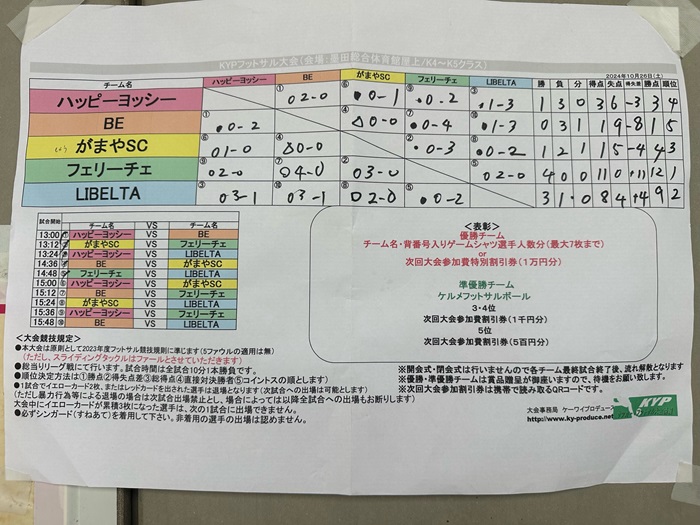 KYPフットサル大会(会場:墨田総合体育館屋上/K4～K5クラス)
2024年10月26日(土)
チーム名 ハッピーヨッシー BE がまやSC フェリーチェ LIBELTA 勝 負 分 得点 失点 得失差 勝点 順位
ハッピーヨッシー ① ○2-0 ⑥ ●0-1 ⑨ ●0-2 ③ ●1-3 1 3 0 3 6 -3 3 4
BE ① ●0-2 ④ △0-0 ⑦ ●0-4 ⑩ ●1-3 0 3 1 1 9 -8 1 5
がまやSC ⑥ ○1-0 ④ △0-0 ② ●0-3 ⑧ ●0-2 1 2 1 1 5 -4 4 3
フェリーチェ ⑨ ○2-0 ⑦ ○4-0 ② ○3-0 ⑤ ○2-0 4 0 0 11 0 +11 12 1
LIBELTA ③ ○3-1 ⑩ ○3-1 ⑧ ○2-0 ⑤ ●0-2 3 1 0 8 4 +4 9 2
試合開始 チーム名 VS チーム名
13:00 ① ハッピーヨッシー VS BE
13:12 ② がまやSC VS フェリーチェ
13:24 ③ ハッピーヨッシー VS LIBELTA
14:36 ④ BE VS がまやSC
14:48 ⑤ フェリーチェ VS LIBELTA
15:00 ⑥ ハッピーヨッシー VS がまやSC
15:12 ⑦ BE VS フェリーチェ
15:24 ⑧ がまやSC VS LIBELTA
15:36 ⑨ ハッピーヨッシー VS フェリーチェ
15:48 ⑩ BE VS LIBELTA
<表彰>
優勝チーム
チーム名・背番号入りゲームシャツ選手人数分(最大7枚まで)
or
次回大会参加費特別割引券(1万円分)
準優勝チーム
ケルメフットサルボール
3・4位
次回大会参加費割引券(1千円分)
5位
次回大会参加費割引券(5百円分)
<大会競技規定>
●本大会は原則として2023年度フットサル競技規則に準じます(5ファウルの適用は無)
(ただし、スライディングタックルはファールとさせていただきます)
●総当りリーグ戦にて行います。試合時間は全試合10分1本勝負です。
●順位決定方法は①勝点②得失点差③総得点④直接対決勝者⑤コイントスの順とします)
●1試合でイエローカード2枚、またはレッドカードを出された選手は退場となります(次試合への出場は可能とします)
(ただし暴力行為等による退場の場合は次試合出場禁止とし、場合によっては以降全試合への出場もお断りします)
大会中にイエローカードが累積3枚になった選手は、次の1試合に出場できません。
●必ずシンガード(すねあて)を着用して下さい。非着用の選手の出場は認めません。
※開会式・閉会式は行いませんので各チーム最終試合終了後、流れ解散となります
※優勝・準優勝チームは賞品贈呈が御座いますので、待機をお願い致します。
※次回大会参加割引券は携帯で読み取るQRコードです。
大会事務局 ケーワイプロデュース
http://www.ky-produce.net
KYP